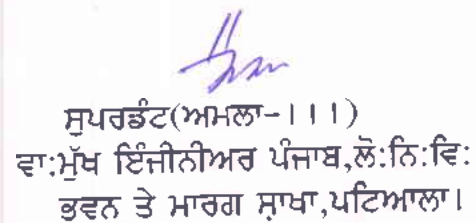 ਸੁਪਰਡੰਟ(ਅਮਲਾ-।।।)
ਵਾ:ਮੁੱਖ ਇੰਜੀਨੀਅਰ ਪੰਜਾਬ,ਲੋ:ਨਿ:ਵਿ:
ਭਵਨ ਤੇ ਮਾਰਗ ਸ਼ਾਖਾ,ਪਟਿਆਲਾ।